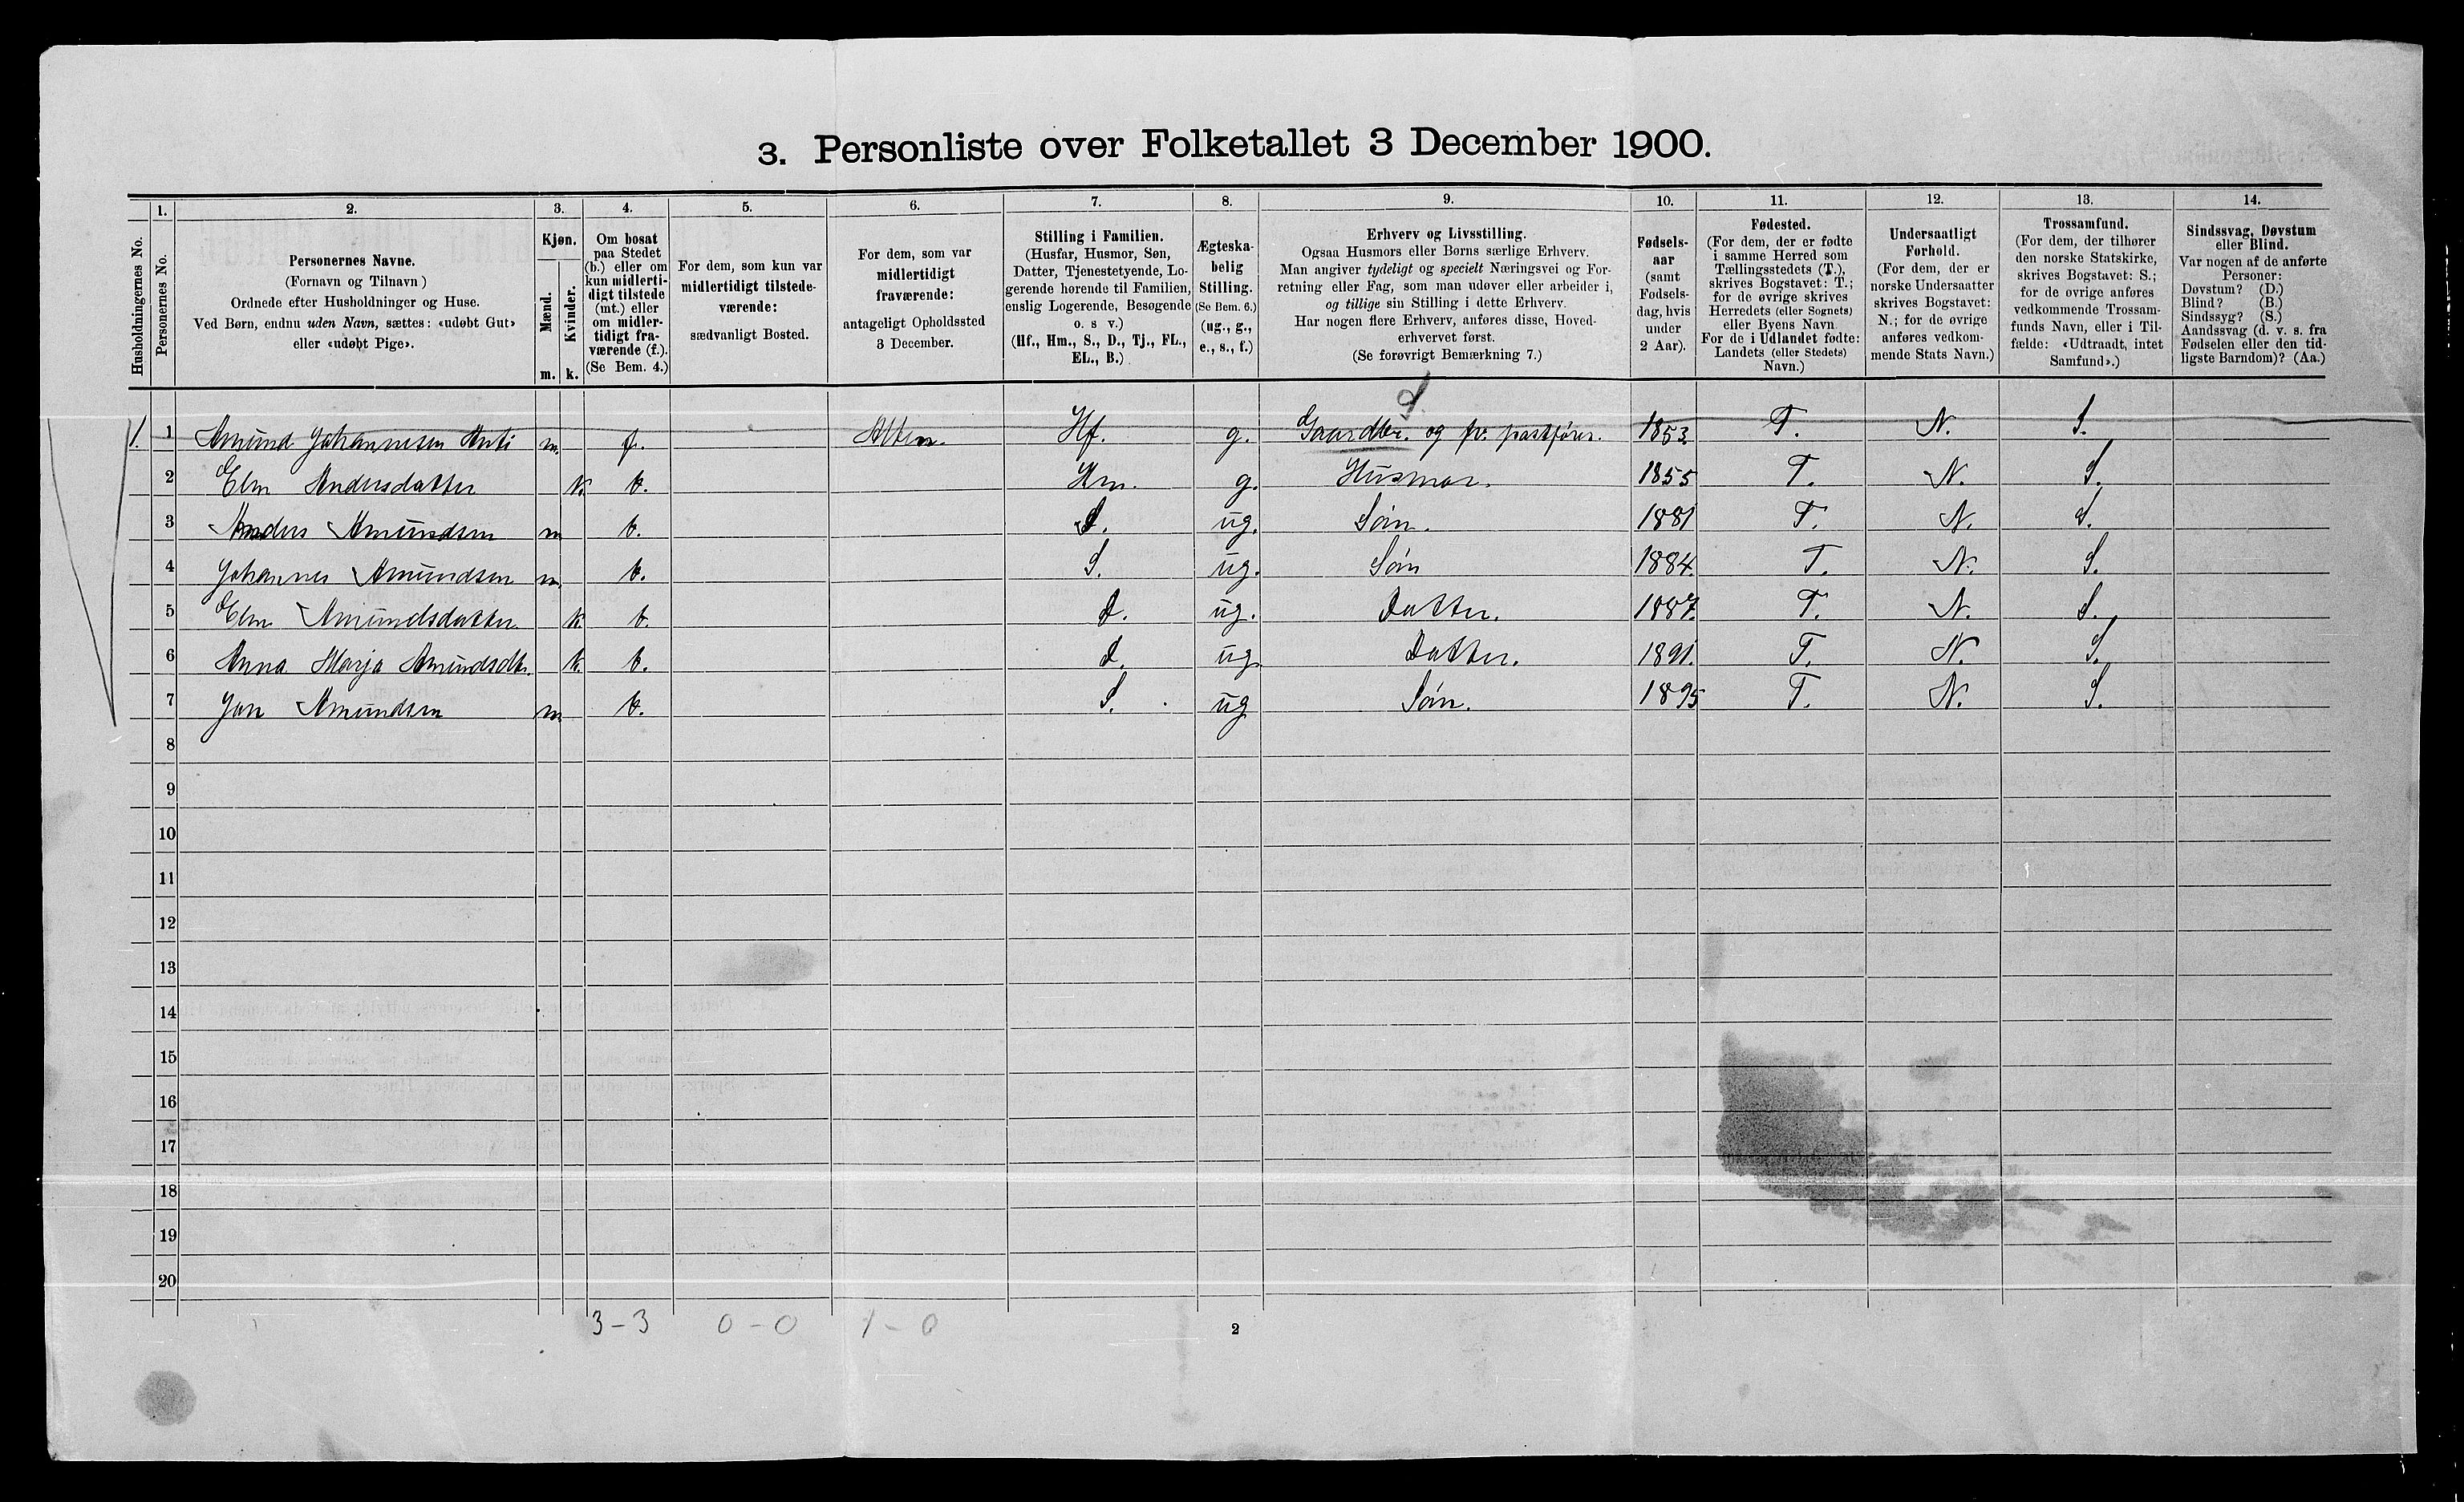 3. Personliste over Folketallet 3 December 1900.
1. 2. 3. 4. 5. 6. 7. 8. 9. 10. 11. 12. 13. 14.
Husholdningernes No.
Personernes No.
Personernes Navne.
(Fornavn og Tilnavn)
Ordnede efter Husholdninger og Huse.
Ved Børn, endnu uden Navn, sættes: «udøbt Gut»
eller «udøbt Pige».
Kjøn.
Mænd.
Kvinder.
m. k.
Om bosat
paa Stedet
(b.) eller om
kun midlerti-
digt tilstede
(mt.) eller
om midler-
tidigt fra-
værende (f.).
(Se Bem. 4.)
For dem, som kun var
midlertidigt tilstede-
værende:
sædvanligt Bosted.
For dem, som var
midlertidigt
fraværende:
antageligt Opholdssted
3 December.
Stilling i Familien.
(Husfar, Husmor, Søn,
Datter, Tjenestetyende, Lo-
gerende hørende til Familien,
enslig Logerende, Besøgende
o. s v.)
(Hf., Hm., S., D., Tj., FL.,
EL., B.)
Ægteska-
belig
Stilling.
(Se Bem. 6.)
(ug., g.,
e., s., f.)
Erhverv og Livsstilling.
Ogsaa Husmors eller Børns særlige Erhverv.
Man angiver tydeligt og specielt Næringsvei og For-
retning eller Fag, som man udøver eller arbeider i,
og tillige sin Stilling i dette Erhverv.
Har nogen flere Erhverv, anføres disse, Hoved-
erhvervet først.
(Se forøvrigt Bemærkning 7.)
Fødsels-
aar
(samt
Fødsels-
dag, hvis
under
2 Aar).
Fødested.
(For dem, der er fødte
i samme Herred som
Tællingsstedets (T.),
skrives Bogstavet: T.;
for de øvrige skrives
Herredets (eller Sognets)
eller Byens Navn.
For de i Udlandet fødte:
Landets (eller Stedets)
Navn.)
Undersaatligt
Forhold.
(For dem, der er
norske Undersaatter
skrives Bogstavet:
N.; for de øvrige
anføres vedkom-
mende Stats Navn.)
Trossamfund.
(For dem, der tilhører
den norske Statskirke,
skrives Bogstavet: S.;
for de øvrige anføres
vedkommende Trossam-
funds Navn, eller i Til-
fælde: «Udtraadt, intet
Samfund».)
Sindssvag, Døvstum
eller Blind.
Var nogen af de anførte
Personer:
Døvstum? (D.)
Blind? (B.)
Sindssyg? (S.)
Aandssvag (d. v. s. fra
Fødselen eller den tid-
ligste Barndom)? (Aa.)
1. 1 Amund Johannesen Anti m. f. Alten. Hf. g. Gaardbr. og fv. postfører. 1853. T. N. S.
2 Elen Andersdatter k. b. Hm. g. Husmor. 1855 T. N. S.
3 Anders Amundsen m b. S. ug. Søn. 1881 T. N. S.
4 Johannes Amundsen m. b. S. ug. Søn 1884. T. N. S.
5 Elen Amundsdatter. k. b. d. ug. Datter. 1887. T. N. S.
6 Anna Marja Amundsdtr. k. b. d. ug. Datter. 1891. T. N. S.
7 Jon Amundsen m b. S. ug Søn. 1895 T. N. S.
8
9
10
11
12
13
14
15
16
17
18
19
20
3 - 3 0 - 0 1 - 0
2